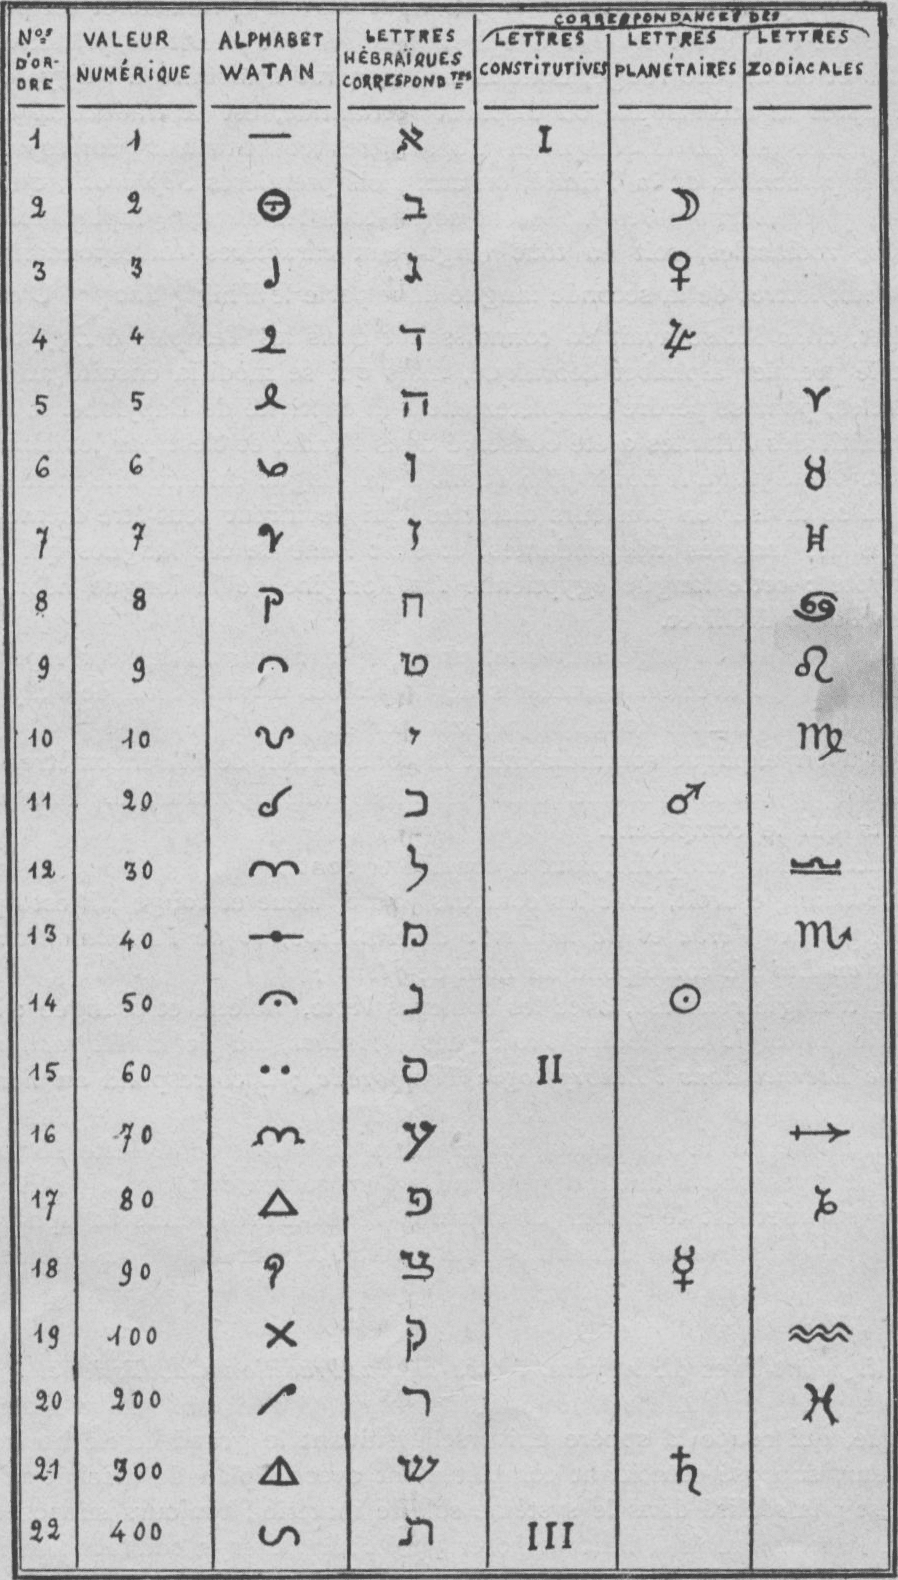 CORRESPONDANCES DES
Nos D'OR-DRE | VALEUR NUMÉRIQUE | ALPHABET WATAN | LETTRES HÉBRAÏQUES CORRESPONDtes | LETTRES CONSTITUTIVES | LETTRES PLANÉTAIRES | LETTRES ZODIACALES
1 1 א I
2 2 ב ☽
3 3 ג ♀
4 4 ד ♃
5 5 ה ♈
6 6 ו ♉
7 7 ז ♊
8 8 ח ♋
9 9 ט ♌
10 10 י ♍
11 20 כ ♂
12 30 ל ♎
13 40 מ ♏
14 50 נ ☉
15 60 ס II
16 70 ע ♐
17 80 פ ♑
18 90 צ ☿
19 100 ק ♒
20 200 ר ♓
21 300 ש ♄
22 400 ת III